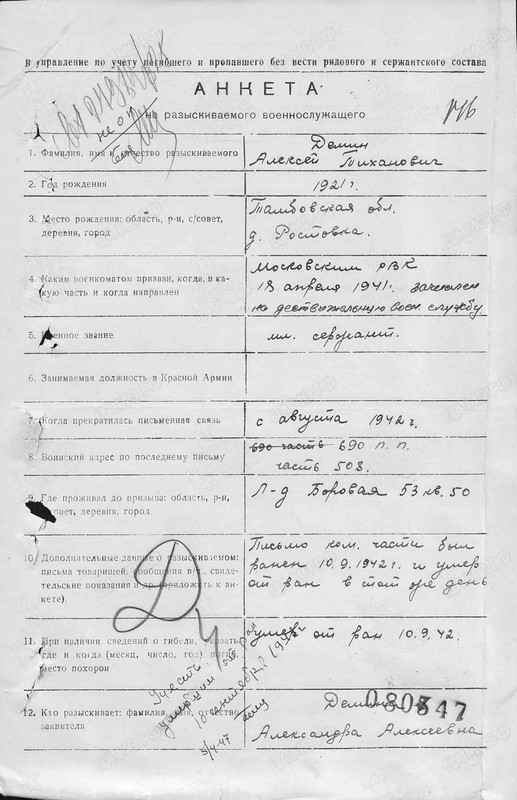 В управление по учету погибшего и пропавшего без вести рядового и сержантского состава
АНКЕТА
на разыскиваемого военнослужащего
1. Фамилия, имя и отчество разыскиваемого
Демин
Алексей Тиханович
2. Год рождения
1921 г.
3. Место рождения: область, р-н, с/совет,
деревня, город
Тамбовская обл.
д. Ростовка.
4. Каким военкоматом призван, когда, в ка-
кую часть и когда направлен
Московским РВК
18 апреля 1941г. зачислен
на действительную воен. службу
5. Военное звание
мл. сержант.
6. Занимаемая должность в Красной Армии
7. Когда прекратилась письменная связь
с августа 1942 г.
8. Воинский адрес по последнему письму
690 часть 690 п. п.
часть 508.
9. Где проживал до призыва: область, р-н,
с/совет, деревня, город
Л-д Боровая 53 кв. 50
10. Дополнительные данные о разыскиваемом:
письма товарищей, сообщения в/ч, свиде-
тельские показания и др. (приложить к ан-
кете).
Письмо ком. части был
ранен 10.9.1942 г. и умер
от ран в тот же день
11. При наличии сведений о гибели, указать,
где и когда (месяц, число, год) погиб,
место похорон
умер от ран 10.9.42.
Учесть
умершим от ран
10 сентября 1942 г
5/4-47
12. Кто разыскивает: фамилия, имя, отчество
заявителя
Демина
Александра Алексеевна
080847